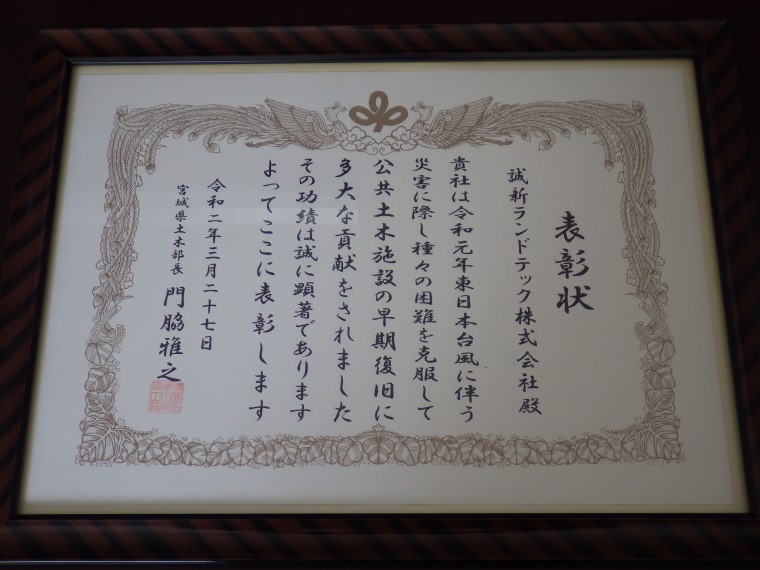 表彰状
誠新ランドテック株式会社殿
貴社は令和元年東日本台風に伴う
災害に際し種々の困難を克服して
公共土木施設の早期復旧に
多大な貢献をされました
その功績は誠に顕著であります
よってここに表彰します
令和二年三月二十七日
宮城県土木部長 門脇雅之